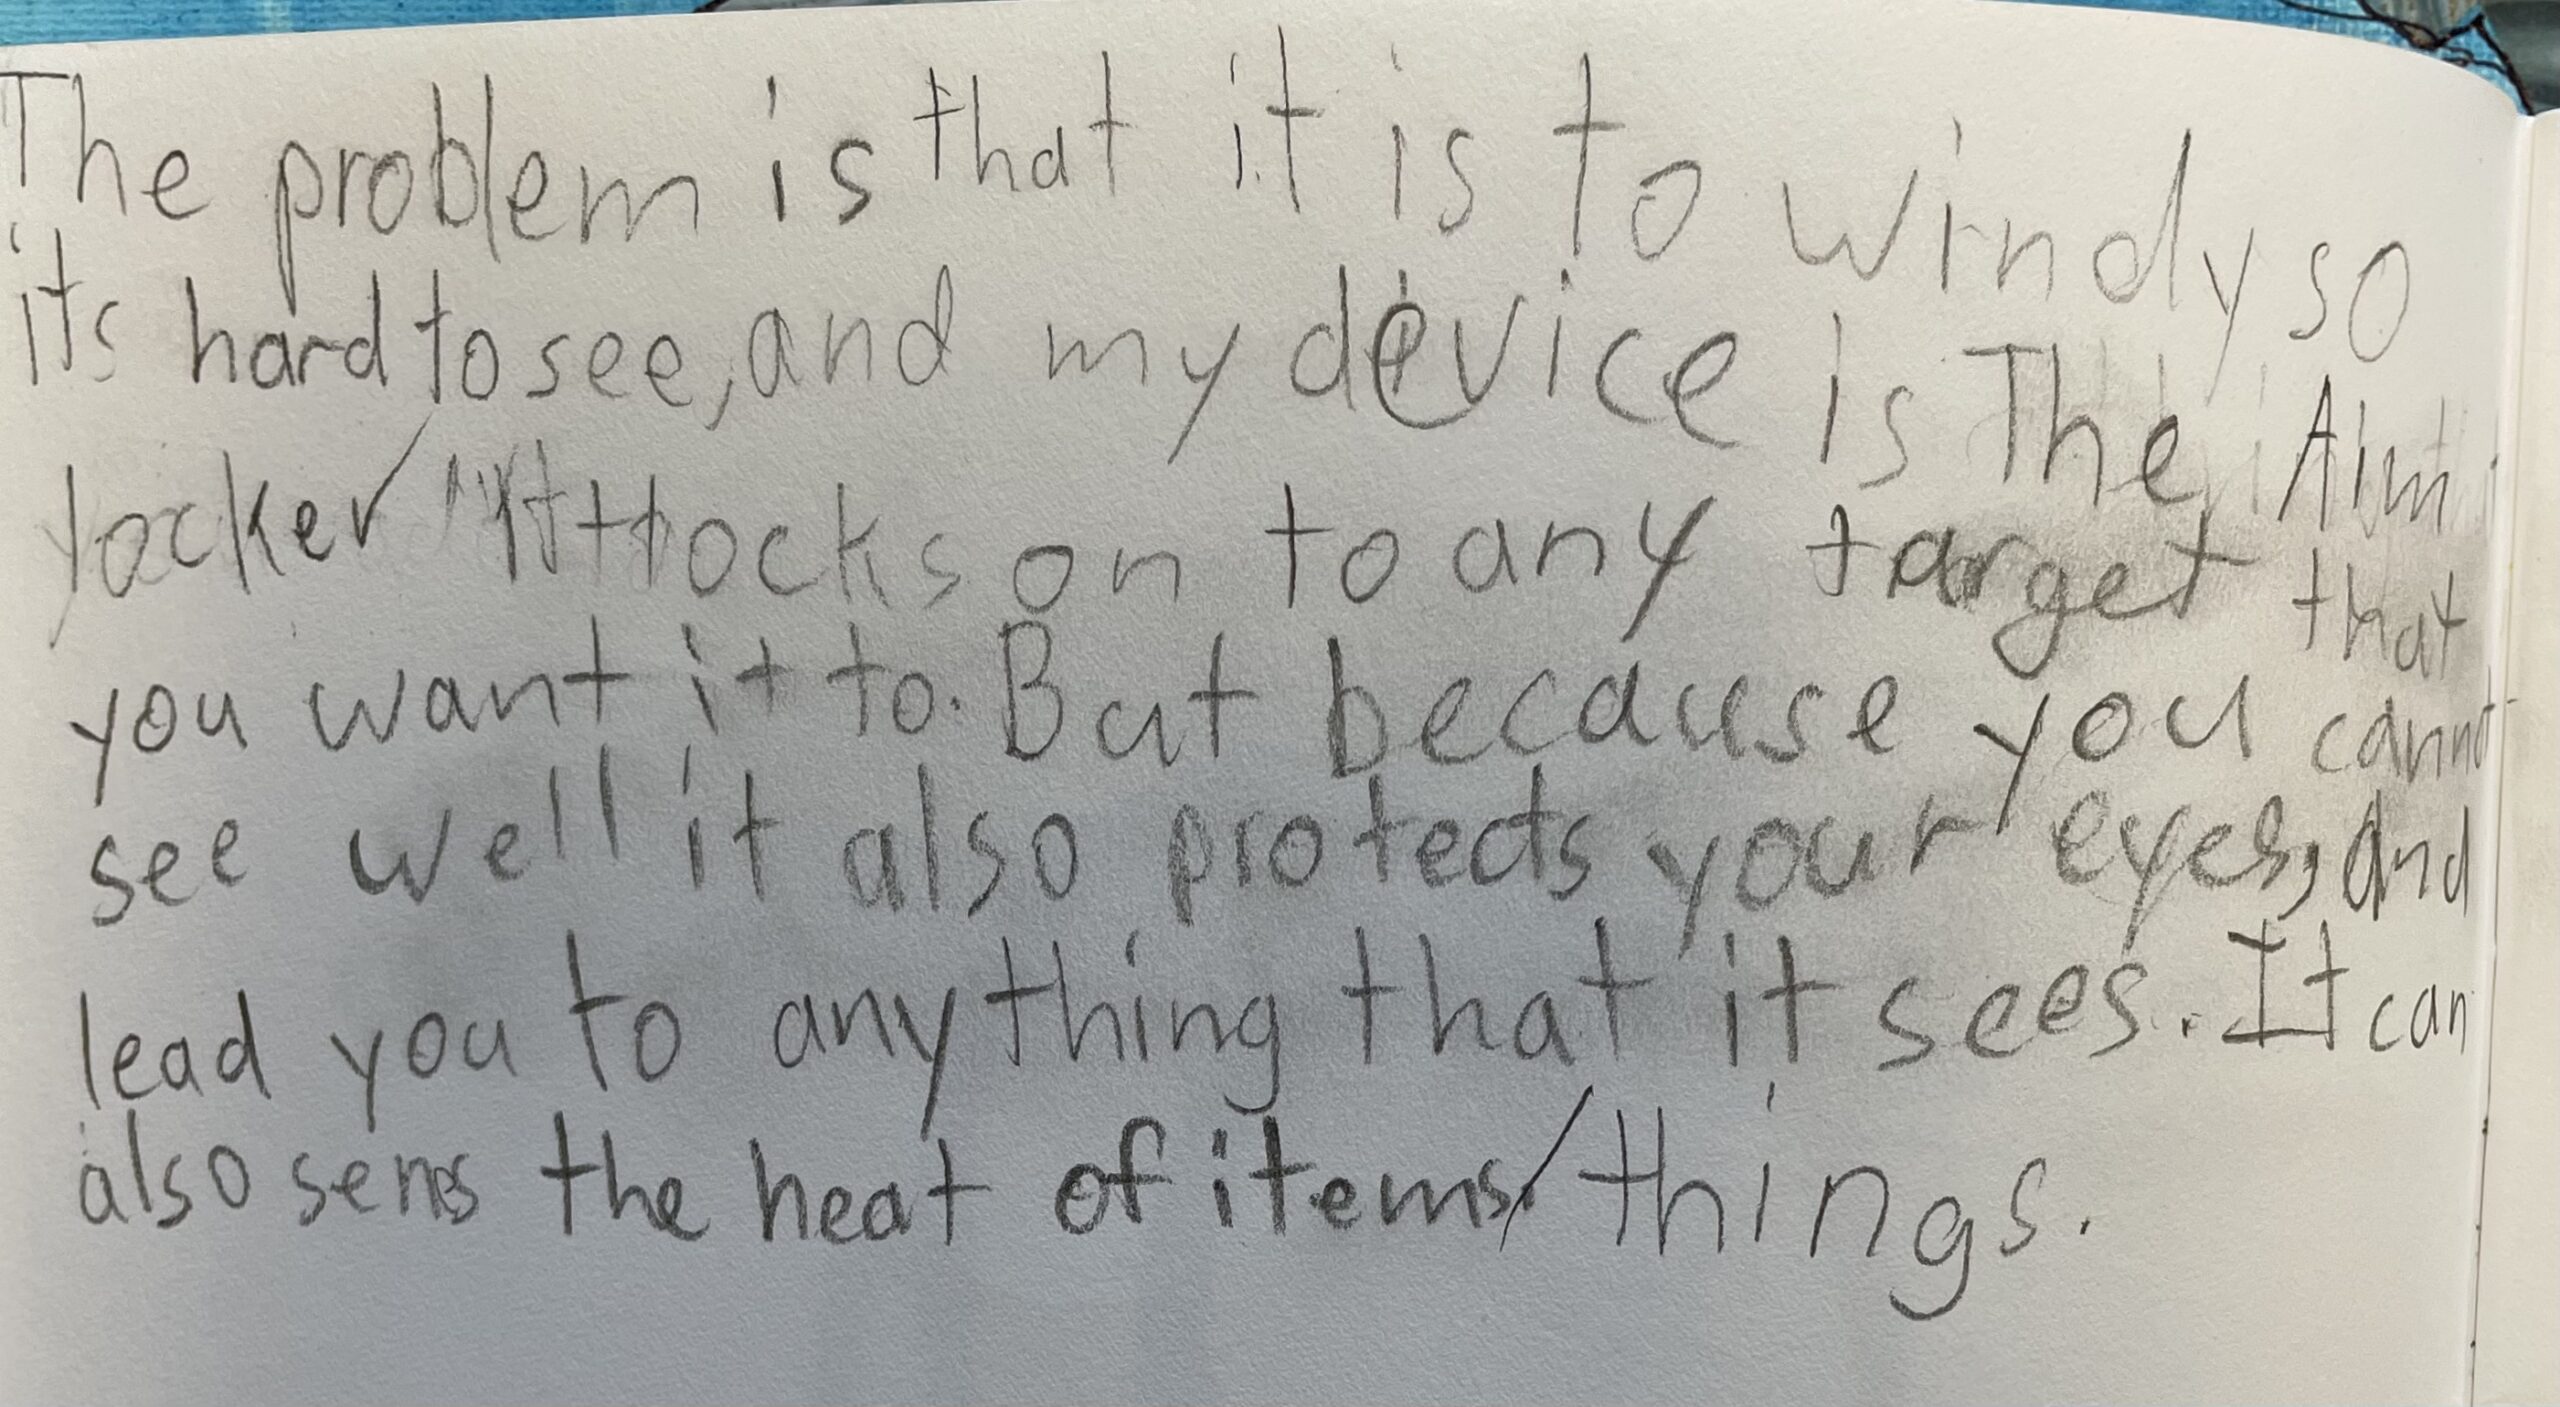 The problem is that it is to windy so
its hard to see, and my device is The Aim
locker It locks on to any target that
you want it to. But because you cannot
see well it also protects your eyes, and
lead you to anything that it sees. It can
also sens the heat of items/things.